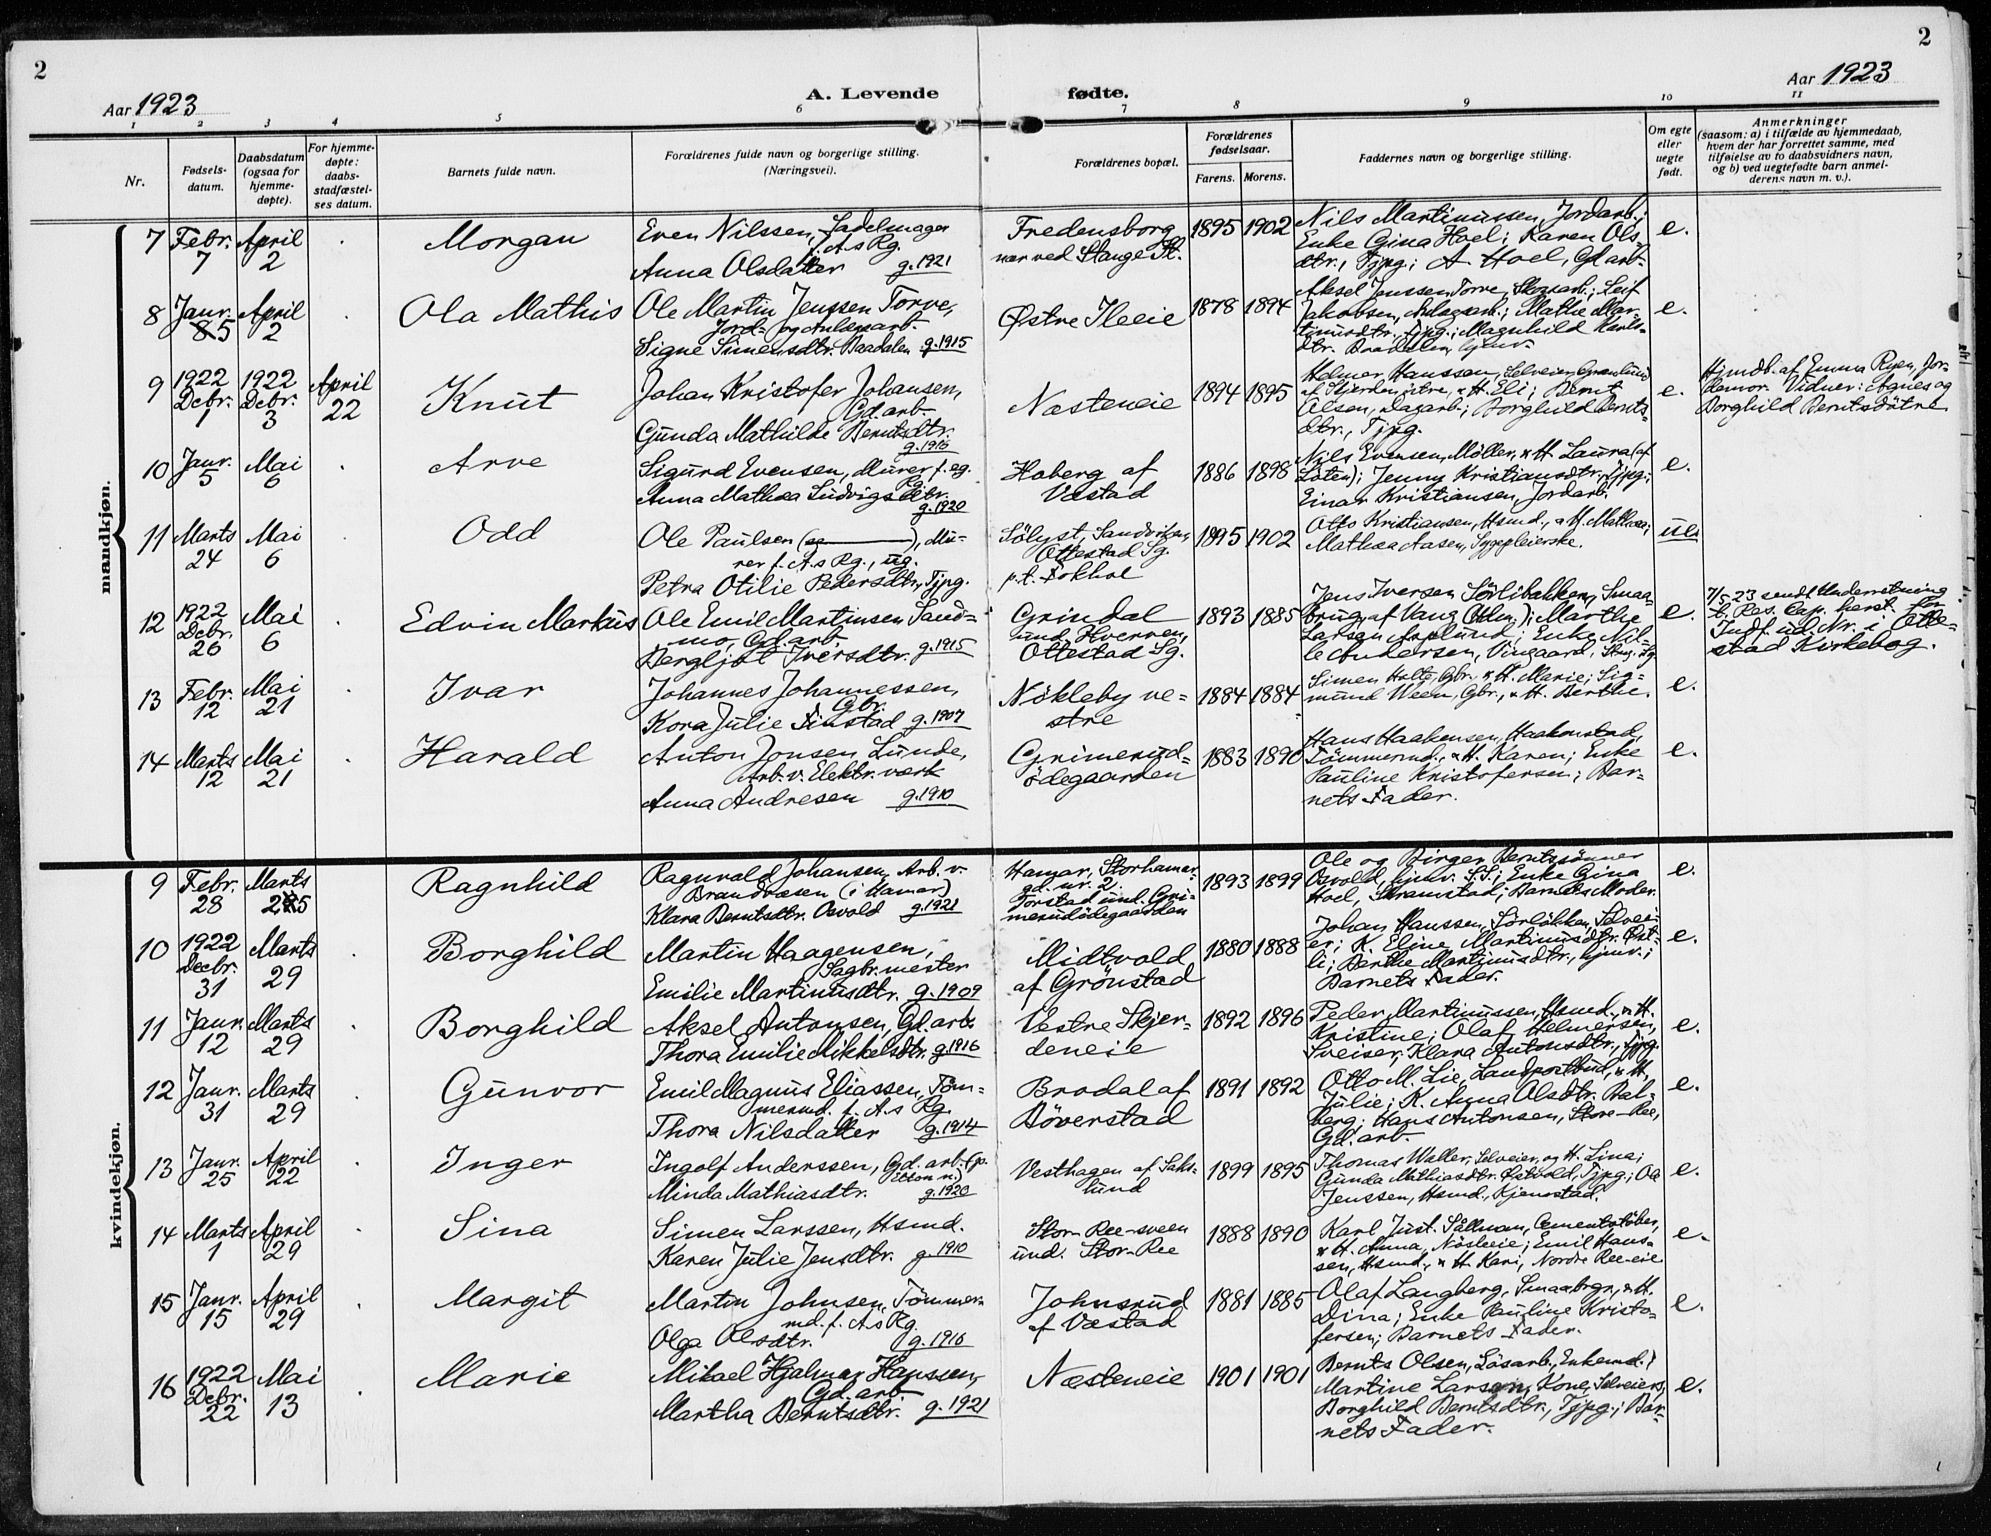 2
2
Aar 1923
A. Levende fødte.
Aar 1923
1 2 3 4 5 6 7 8 9 10 11
Nr.
Fødsels-
datum.
Daabsdatum
(ogsaa for
hjemme-
døpte).
For hjemme-
døpte:
daabs-
stadfæstel-
ses datum.
Barnets fulde navn.
Forældrenes fulde navn og borgerlige stilling.
(Næringsvei).
Forældrenes bopæl.
Forældrenes
fødselsaar.
Farens. Morens.
Faddernes navn og borgerlige stilling.
Om egte
eller
uegte
født.
Anmerkninger
(saasom: a) i tilfælde av hjemmedaab,
hvem der har forrettet samme, med
tilføielse av to daabsvidners navn,
og b) ved uegtefødte barn anmel-
derens navn m. v.).
mandkjøn.
7 Febr. 7 April 2 Morgan
Even Nilssen, Sadelmager
f. A.s Rg.
Anna Olsdatter g. 1921
Fredensborg
nær ved Stange St.
1895 1902
Nils Martinussen, Jordarb.;
Enke Gina Hoel; Karen Ols-
dtr., Tjpg.; A. Hoel, Gd.arb.
e.
8 Janr. 5 April 2 Ola Mathis
Ole Martin Jenssen Torve,
Jord- og Anlægsarb.
Signe Simensdtr. Baadalen g. 1915
Østre Ileeie
1878 1894
Aksel Jenssen Torve, Skogsarb.; Leif
Jakobsen, Anlægsarb.; Mathea Mar-
tinusdtr., Tjpg.; Magnhild Karls-
dtr. Baadalen, hjmv.
e.
9 1922 Debr. 1 1922 Debr. 3 April 22 Knut
Johan Kristofer Johansen,
Gd.arb.
Gunda Mathilde Berntsdtr.
g. 1916
Næsteneie
1894 1895
Helmer Hanssen, Selveier, Grønlund
af Skjerden østre, & H. Eli; Bernt
Olsen, Dagarb.; Borghild Bernts-
dtr., Tjpg.
e.
Hjmdb. af Emma Ryen, Jor-
demor. Vidner: Agnes og
Borghild Berntsdøtre
10 Janr. 5 Mai 6 Arve
Sigurd Evensen, Murer f. eg.
Rg.
Anna Mathea Ludvigsdtr.
g. 1920
Hoberg af
Væstad
1886 1898
Nils Evensen, Møller, & H. Laura (af
Løten); Jenny Kristiansdtr., Tjpg.;
Einar Kristiansen, Jordarb.
e.
11 Marts 24 Mai 6 Odd
Ole Paulsen ( ), Mu-
rer f. A.s Rg., ug.
Petra Otilie Pedersdtr., Tjpg.
Sølyst, Sandviken,
Ottestad Sg.
p.t. Fokhol
1895 1902
Otto Kristiansen, Hsmd., & H. Mathea;
Mathea Aasen, Sygepleierske.
ue.
12 1922 Debr. 26 Mai 6 Edvin Markus
Ole Emil Martinsen Sand-
mo, Gd.arb.
Bergljot Iversdtr. g. 1915
Grindal
und. Hverven,
Ottestad Sg.
1893 1885
Jens Iversen Sørlibakken, Smaa-
brug. af Vang (Hdm.); Marthe
Larsen Asplund; Enke Nil-
le Andersen, Vingaard, Stang. Sg.
e.
7/5 23 sendt Underretning
t. Res. Cap. herst. for
Indf. ud. Nr. i Otte-
stad Kirkebog.
13 Febr. 12 Mai 21 Ivar
Johannes Johannessen,
Gbr.
Kora Julie Finstad g. 1907
Nøkleby ve-
stre
1884 1884
Simen Holte, Gbr. & H. Marie; Sig-
mund Ween, Gbr., & H. Berthe.
e.
14 Marts 12 Mai 21 Harald
Anton Jonsen Lunde,
Arb. v. Elektr. værk
Anna Andresen g. 1910
Grimerud-
ødegaarden
1883 1890
Hans Haakensen, Haakonstad,
Tømmermd., & H. Karen; Enke
Pauline Kristofersen; Bar-
nets Fader.
e.
kvindekjøn.
9 Febr. 28 Marts 25 Ragnhild
Ragnvald Johansen, Arb. v.
Brandvæsen (i Hamar)
Klara Berntsdtr. Osvold g. 1921
Hamar, Storhamar-
gd. nr. 2.
Torstad und. Gri-
merudødegaarden
1893 1899
Ole og Birger Berntssønner
Osvold, hjmv. S.S.; Enke Gina
Hoel, Skramstad; Barnets Moder.
e.
10 1922 Decbr. 31 Marts 29 Borghild
Martin Haagensen,
Sagbr.mester
Emilie Martinusdtr. g. 1909
Midtvold
af Grønstad
1880 1888
Johan Hanssen, Sørløkken, Selvei-
er; K. Eline Martinusdtr. Øst-
li; Berthe Martinusdtr., hjmv.;
Barnets Fader.
e.
11 Janr. 12 Marts 29 Borghild
Aksel Antonsen, Gd.arb.
Thora Emilie Mikkelsdtr. g. 1916
Vestre Skjer-
deneie
1892 1896
Peder Martinussen, Hsmd., & H.
Kristine; Olaf Helmersen,
Sveiser; Klara Antonsdtr., Tjpg.
e.
12 Janr. 31 Marts 29 Gunvor
Emil Magnus Eliassen, Tøm-
mermd. f. A.s Rg.
Thora Nilsdatter g. 1914
Brodal af
Bøverstad
1891 1892
Otto M. Lie, Landpostbud, & H.
Julie; K. Anna Olsdtr. Bal-
berg; Hans Antonsen, Store-Ree,
Gd.arb.
e.
13 Janr. 25 April 22 Inger
Ingolf Anderssen, Gd.arb. (p.
Minda Mathiasdtr. g. 1920
Vesthagen af Saks-
lund
1899 1895
Thomas Waller, Selveier, og H. Lina;
Gunda Mathiasdtr. Østvold, Tjpg.; Ole
Jenssen, Hsmd., Kjemstad.
e.
14 Marts 1 April 29 Sina
Simen Larssen, Hsmd.
Karen Julie Jensdtr. g. 1910
Stor-Ree-sveen
und. Stor-Ree
1888 1890
Karl Just. Sållman, Cementstøber,
& H. Anna, Nøsleie; Emil Hans-
sen, Hsmd., & H. Kari, Nordre Ree-eie
e.
15 Janr. 15 April 29 Margit
Martin Johnsen, Tømmer-
md. f. A.s Rg.
Olga Olsdtr. g. 1916
Johnsrud
af Væstad
1881 1885
Olaf Langberg, Smaabrgr., & H.
Dina; Enke Pauline Kristo-
fersen; Barnets Fader.
e.
16 1922 Debr. 22 Mai 13 Marie
Mikael Hjalmar Hanssen,
Gd.arb.
Martha Berntsdtr. g. 1921
Næsteneie
1901 1901
Bernts Olsen, Løsarb., Enkemd.;
Martine Larsen, Kone, Selveiers;
Borghild Berntsdtr., Tjpg.; Bar-
nets Fader.
e.